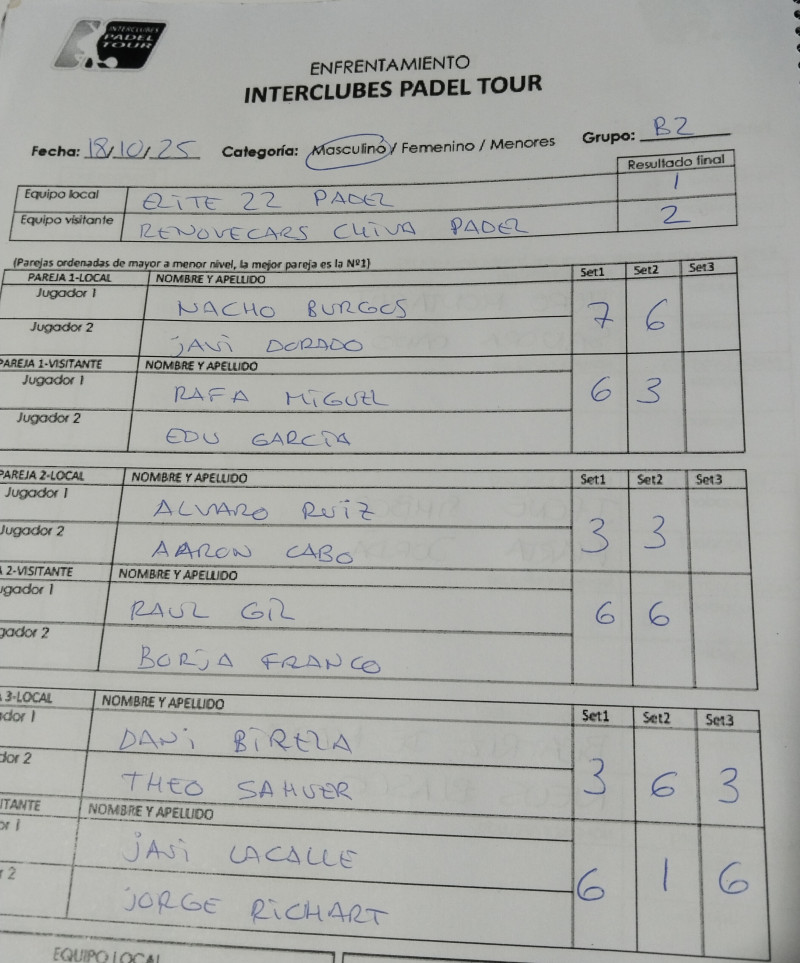 INTERCLUBES
PADEL
TOUR
ENFRENTAMIENTO
INTERCLUBES PADEL TOUR
Fecha: 18/10/25 Categoría: Masculino / Femenino / Menores Grupo: B2
Resultado final
Equipo local ELITE 22 PADEL 1
Equipo visitante RENOVECARS CHIVA PADEL 2
(Parejas ordenadas de mayor a menor nivel, la mejor pareja es la Nº1)
PAREJA 1-LOCAL NOMBRE Y APELLIDO Set1 Set2 Set3
Jugador 1 NACHO BURGOS 7 6
Jugador 2 JAVI DORADO
PAREJA 1-VISITANTE NOMBRE Y APELLIDO
Jugador 1 RAFA MIGUEL 6 3
Jugador 2 EDU GARCÍA
PAREJA 2-LOCAL NOMBRE Y APELLIDO Set1 Set2 Set3
Jugador 1 ALVARO RUIZ 3 3
Jugador 2 AARON CABO
A 2-VISITANTE NOMBRE Y APELLIDO
ugador 1 RAUL GIL 6 6
gador 2 BORJA FRANCO
A 3-LOCAL NOMBRE Y APELLIDO Set1 Set2 Set3
dor 1 DANI 3 6 3
dor 2 THEO
ITANTE NOMBRE Y APELLIDO
or 1 JAVI LACALLE 6 1 6
r 2 JORGE RICHART
EQUIPO LOCAL